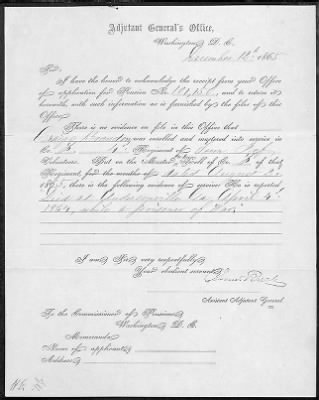 Adjutant General's Office,
Washington D. C.
December 12th 1865
Sir,
I have the honor to acknowledge the receipt from your Office
of application for Pension No. and to return it
herewith, with such information as is furnished by the files of this
Office.
There is no evidence on file in this Office that
was enrolled and mustered into service in
Co. 4th Regiment of
Volunteers. But on the Muster Roll of Co. of that
Regiment, for the months of dated August
1865, there is the following evidence of service: He is reported
Died at Andersonville Ga April
1864, while a prisoner of War.
I am Sir, very respectfully,
Your obedient servant,
Assistant Adjutant General.
To the Commissioner of Pensions
Washington D. C.
Memoranda
Name of applicant
Address